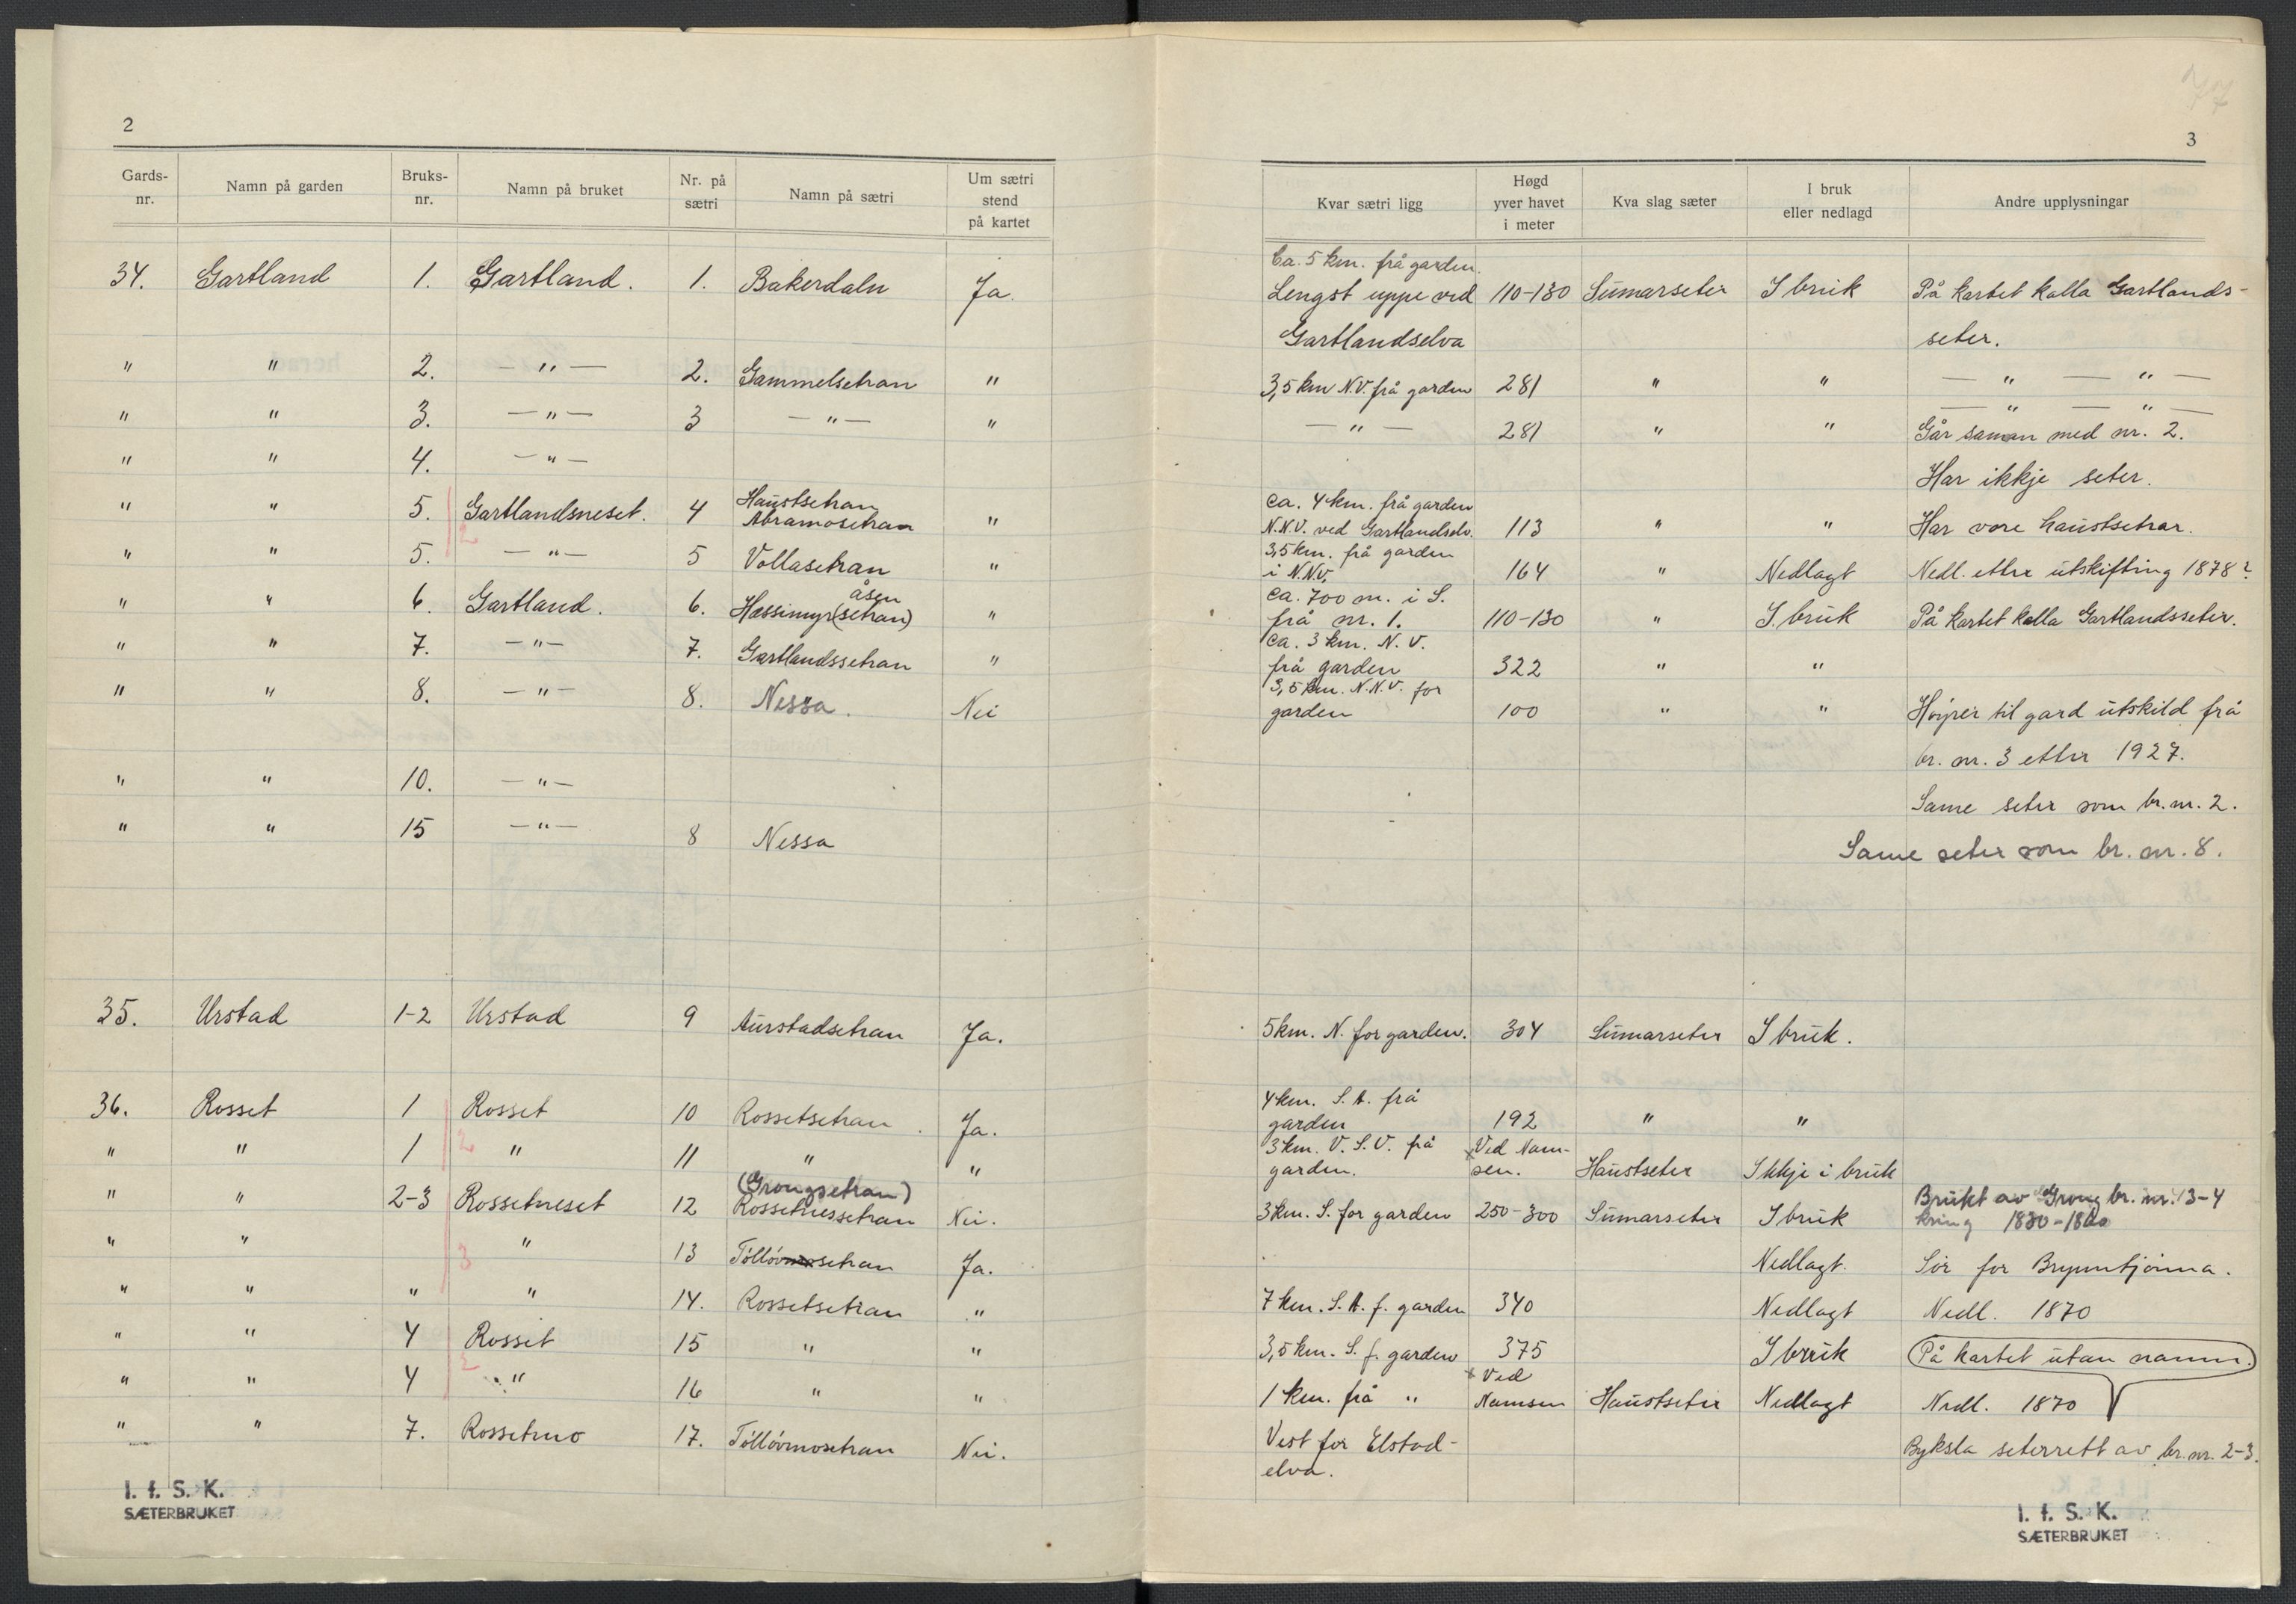 2
Gards-nr. Namn på garden Bruks-nr. Namn på bruket Nr. på sætri Namn på sætri Um sætri stend på kartet
34. Gartland 1. Gartland. 1. Bakerdaln Ja.
" " 2. — " — 2. Gammelsetran "
" " 3. — " — 3 — " — "
" " 4. — " —
" " 5. Gartlandsneset. 4 Haustsetran Abramosetran "
2
" " 5. — " — 5 Vollasetran "
" " 6. Gartland. 6. Hæssimyr(setran) åsen "
" " 7. — " — 7. Gartlandssetran "
" " 8. — " — 8. Nessa. Nei
" " 10. — " —
" " 15 — " — 8 Nessa
35. Urstad 1-2 Urstad 9 Aurstadsetran Ja.
36. Rosset 1 Rosset 10 Rossetsetran. Ja.
" " 1 2 " 11 " "
" " 2-3 Rossetneset 12 (Grongsetran) Rossetnessetran Nei.
" " 3 " 13 Tøllövsetran Ja.
" " " " 14. Rossetsetran "
" " 4 Rosset 15 " "
" " 4 2 " 16 " "
" " 7. Rossetmo 17. Tøllövmosetran Nei.
I. f. S. K.
SÆTERBRUKET
77
3
Kvar sætri ligg Høgd yver havet i meter Kva slag sæter I bruk eller nedlagd Andre upplysningar
Ca. 5 km. frå garden.
Lengst uppe ved 110-130 Sumarseter I bruk På kartet kalla Gartlands-
Gartlandselva seter.
3,5 km N.V. frå garden 281 " " — " — " —
— " — " —
— " — 281 " " Går saman med nr. 2.
Har ikkje seter.
Ca. 4 km. frå garden
N.N.V. ved Gartlandselv. 113 " " Har vore haustsetrar.
3,5 km. frå garden
i N.N.V. 164 " Nedlagt Nedl. etter utskifting 1878?
Ca. 700 m. i S.
frå nr. 1. 110-130 " I bruk På kartet kalla Gartlandsseter.
Ca. 3 km. N. V.
frå garden 322 " "
3,5 km. N.N.V. for
garden 100 " " Høyrer til gard utskild frå
br. nr. 3 etter 1927.
Same seter som br. nr. 2.
Same seter som br. nr. 8.
5 km. N. for garden. 304 Sumarseter I bruk.
4 km. S. A. frå
garden 192 " "
3 km. V. S. V. frå x Ved Nam-
garden. sen. Haustseter Ikkje i bruk
Brukt av Grong br. nr. 3-4
3 km. S. for garden 250-300 Sumarseter I bruk kring 1830-18
Nedlagt. Sør for Brynntjønna.
7 km. S. A. f. garden 340 Nedlagt Nedl. 1870
3,5 km. S. f. garden 375 I bruk På kartet utan namn.
x Ved
1 km. frå " Namsen Haustseter Nedlagt Nedl. 1870
Vest for Elstad- Byksla seterrett av br. nr. 2-3.
elva.
I. f. S. K.
SÆTERBRUKET